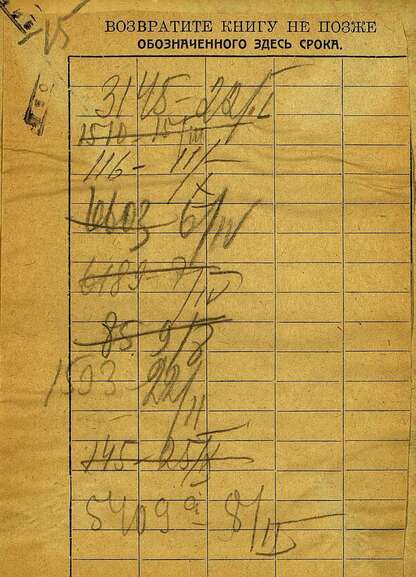 ВОЗВРАТИТЕ КНИГУ НЕ ПОЗЖЕ
ОБОЗНАЧЕННОГО ЗДЕСЬ СРОКА.
3145 - 22/I
1510 - 15/III
116 - 11/I
6603 6/IV
6189 - 7/IV
85 9/X
1593 - 22/II
145 - 25/X
5409а 8/IV